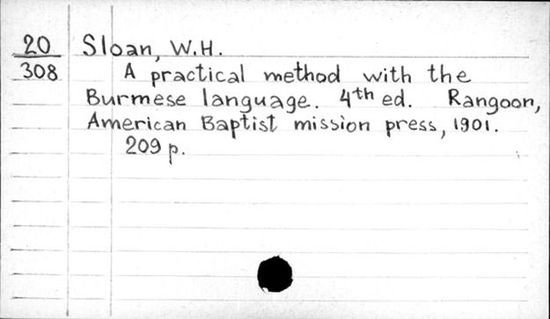 20 Sloan, W.H.
308 A practical method with the
Burmese language. 4th ed. Rangoon,
American Baptist mission press, 1901.
209 p.